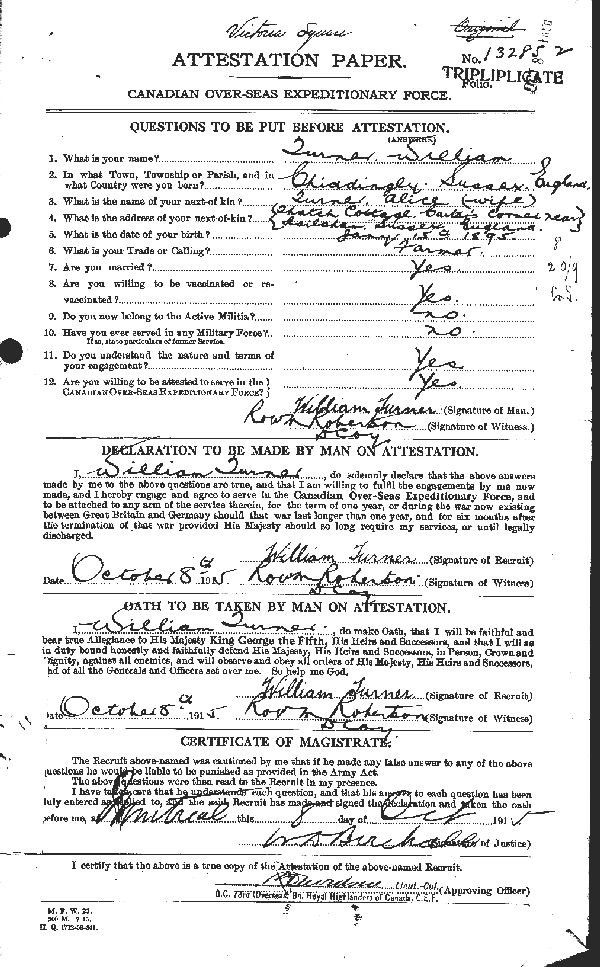 Victoria Square
Original
ATTESTATION PAPER.
No. 132852
TRIPLIPLICATE
Folio.
CANADIAN OVER-SEAS EXPEDITIONARY FORCE.
QUESTIONS TO BE PUT BEFORE ATTESTATION.
(ANSWERS)
1. What is your name? Turner, William
2. In what Town, Township or Parish, and in
what Country were you born? Chiddingly. Sussex. England.
3. What is the name of your next-of-kin? Turner, Alice (wife)
4. What is the address of your next-of-kin? Cottage Corner near
Hailsham Sussex England.
5. What is the date of your birth? Jany. 15 1895
6. What is your Trade or Calling? Farmer.
7. Are you married? Yes
8. Are you willing to be vaccinated or re-
vaccinated? Yes.
9. Do you now belong to the Active Militia? no.
10. Have you ever served in any Military Force? no.
If so, state particulars of former Service.
11. Do you understand the nature and terms of
your engagement? Yes
12. Are you willing to be attested to serve in the }
CANADIAN OVER-SEAS EXPEDITIONARY FORCE? } Yes.
William Turner (Signature of Man.)
Robertson (Signature of Witness.)
D Coy.
DECLARATION TO BE MADE BY MAN ON ATTESTATION.
I, William Turner, do solemnly declare that the above answers
made by me to the above questions are true, and that I am willing to fulfil the engagements by me now
made, and I hereby engage and agree to serve in the Canadian Over-Seas Expeditionary Force, and
to be attached to any arm of the service therein, for the term of one year, or during the war now existing
between Great Britain and Germany should that war last longer than one year, and for six months after
the termination of that war provided His Majesty should so long require my services, or until legally
discharged.
William Turner (Signature of Recruit)
Date October 8 1915 Robertson (Signature of Witness)
D Coy
OATH TO BE TAKEN BY MAN ON ATTESTATION.
I, William Turner, do make Oath, that I will be faithful and
bear true Allegiance to His Majesty King George the Fifth, His Heirs and Successors, and that I will as
in duty bound honestly and faithfully defend His Majesty, His Heirs and Successors, in Person, Crown and
Dignity, against all enemies, and will observe and obey all orders of His Majesty, His Heirs and Successors,
nd of all the Generals and Officers set over me. So help me God.
William Turner (Signature of Recruit)
Date October 8 1915 Robertson (Signature of Witness)
D Coy
CERTIFICATE OF MAGISTRATE.
The Recruit above-named was cautioned by me that if he made any false answer to any of the above
questions he would be liable to be punished as provided in the Army Act.
The above questions were then read to the Recruit in my presence.
I have taken care that he understands each question, and that his answer to each question has been
duly entered as replied to, and the said Recruit has made and signed the declaration and taken the oath
before me, at Montreal this 8 day of Oct 1915
(Signature of Justice)
I certify that the above is a true copy of the Attestation of the above-named Recruit.
Lieut-Col. (Approving Officer)
O.C. 73rd (Overseas) Bn. Royal Highlanders of Canada, C.E.F.
M. F. W. 23.
H. Q. 1772-39-841.